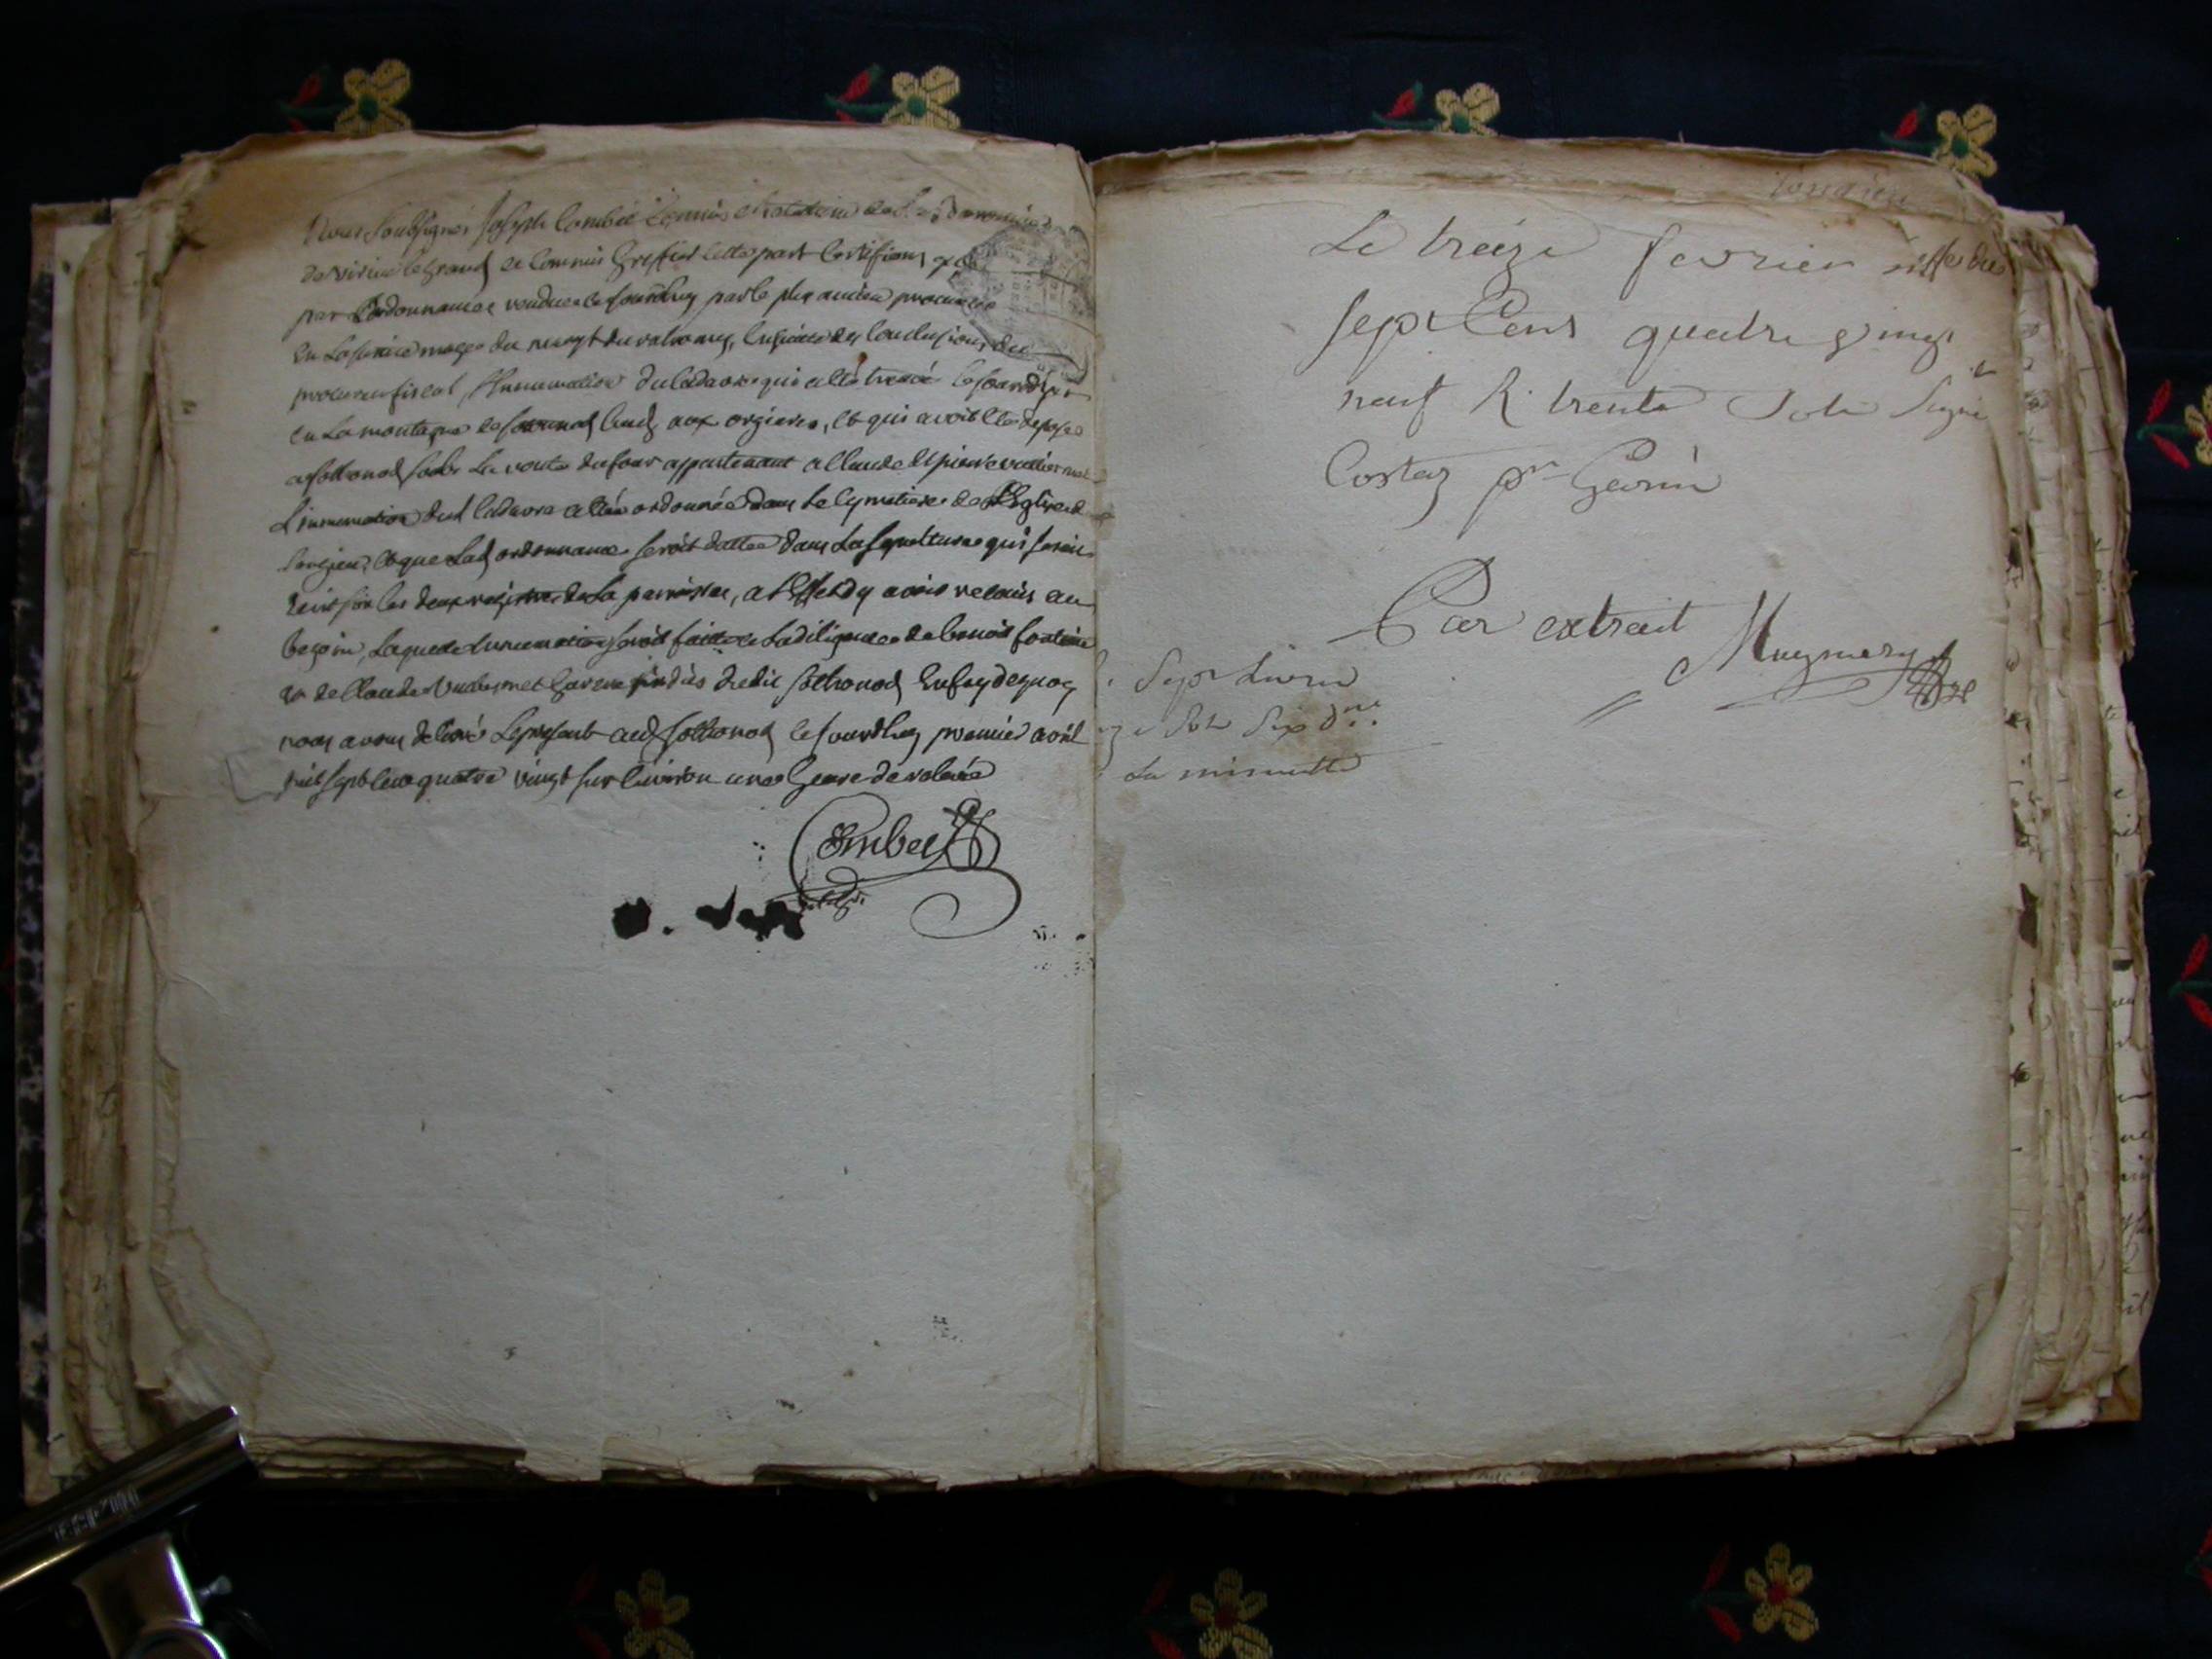 Nous Soubsignés Joseph Combet Commis
de virieu le grand et Commis Greffier cette part Certifions que
par L'ordonnance rendue ce Jourdhuy par le plus ancien procureur
En La Justice mage du valromey, Ensuite des Conclusions du
procureur fiscal, L'Inumation du Cadavre qui a été trouvé ce Jourdhuy
en La montagne de Sothonod lieud aux orgieres, et qui avoit été deposé
a Sothonod Soubs La voute du four appartenant a Claude et pierre
L'inumation dud Cadavre a été ordonnée dans Le Cymetiere de L'Eglise de
Songieu, et que Lad ordonnance seroit dattée dans La Sepulture qui seroit
sur les deux registres de La parroisse, a L'Effet d'y avoir recours au
besoin, Laquelle Inumation seroit faitte a La diligence de benoit fontaine
et de Claude sindics dudit Sothonod En foy de quoy
nous avons delivré Le present aud Sothonod ce Jourdhuy premier avril
mil sept Cent quatre vingt sur Environ une heure de relevée
Combet
Songieu
Le treize fevrier
sept Cent quatre vingt
neuf R. trente Sols Signé
Costaz pr Gevrin
Par extrait
Sept Livres
Sols Six drs.
La minutte